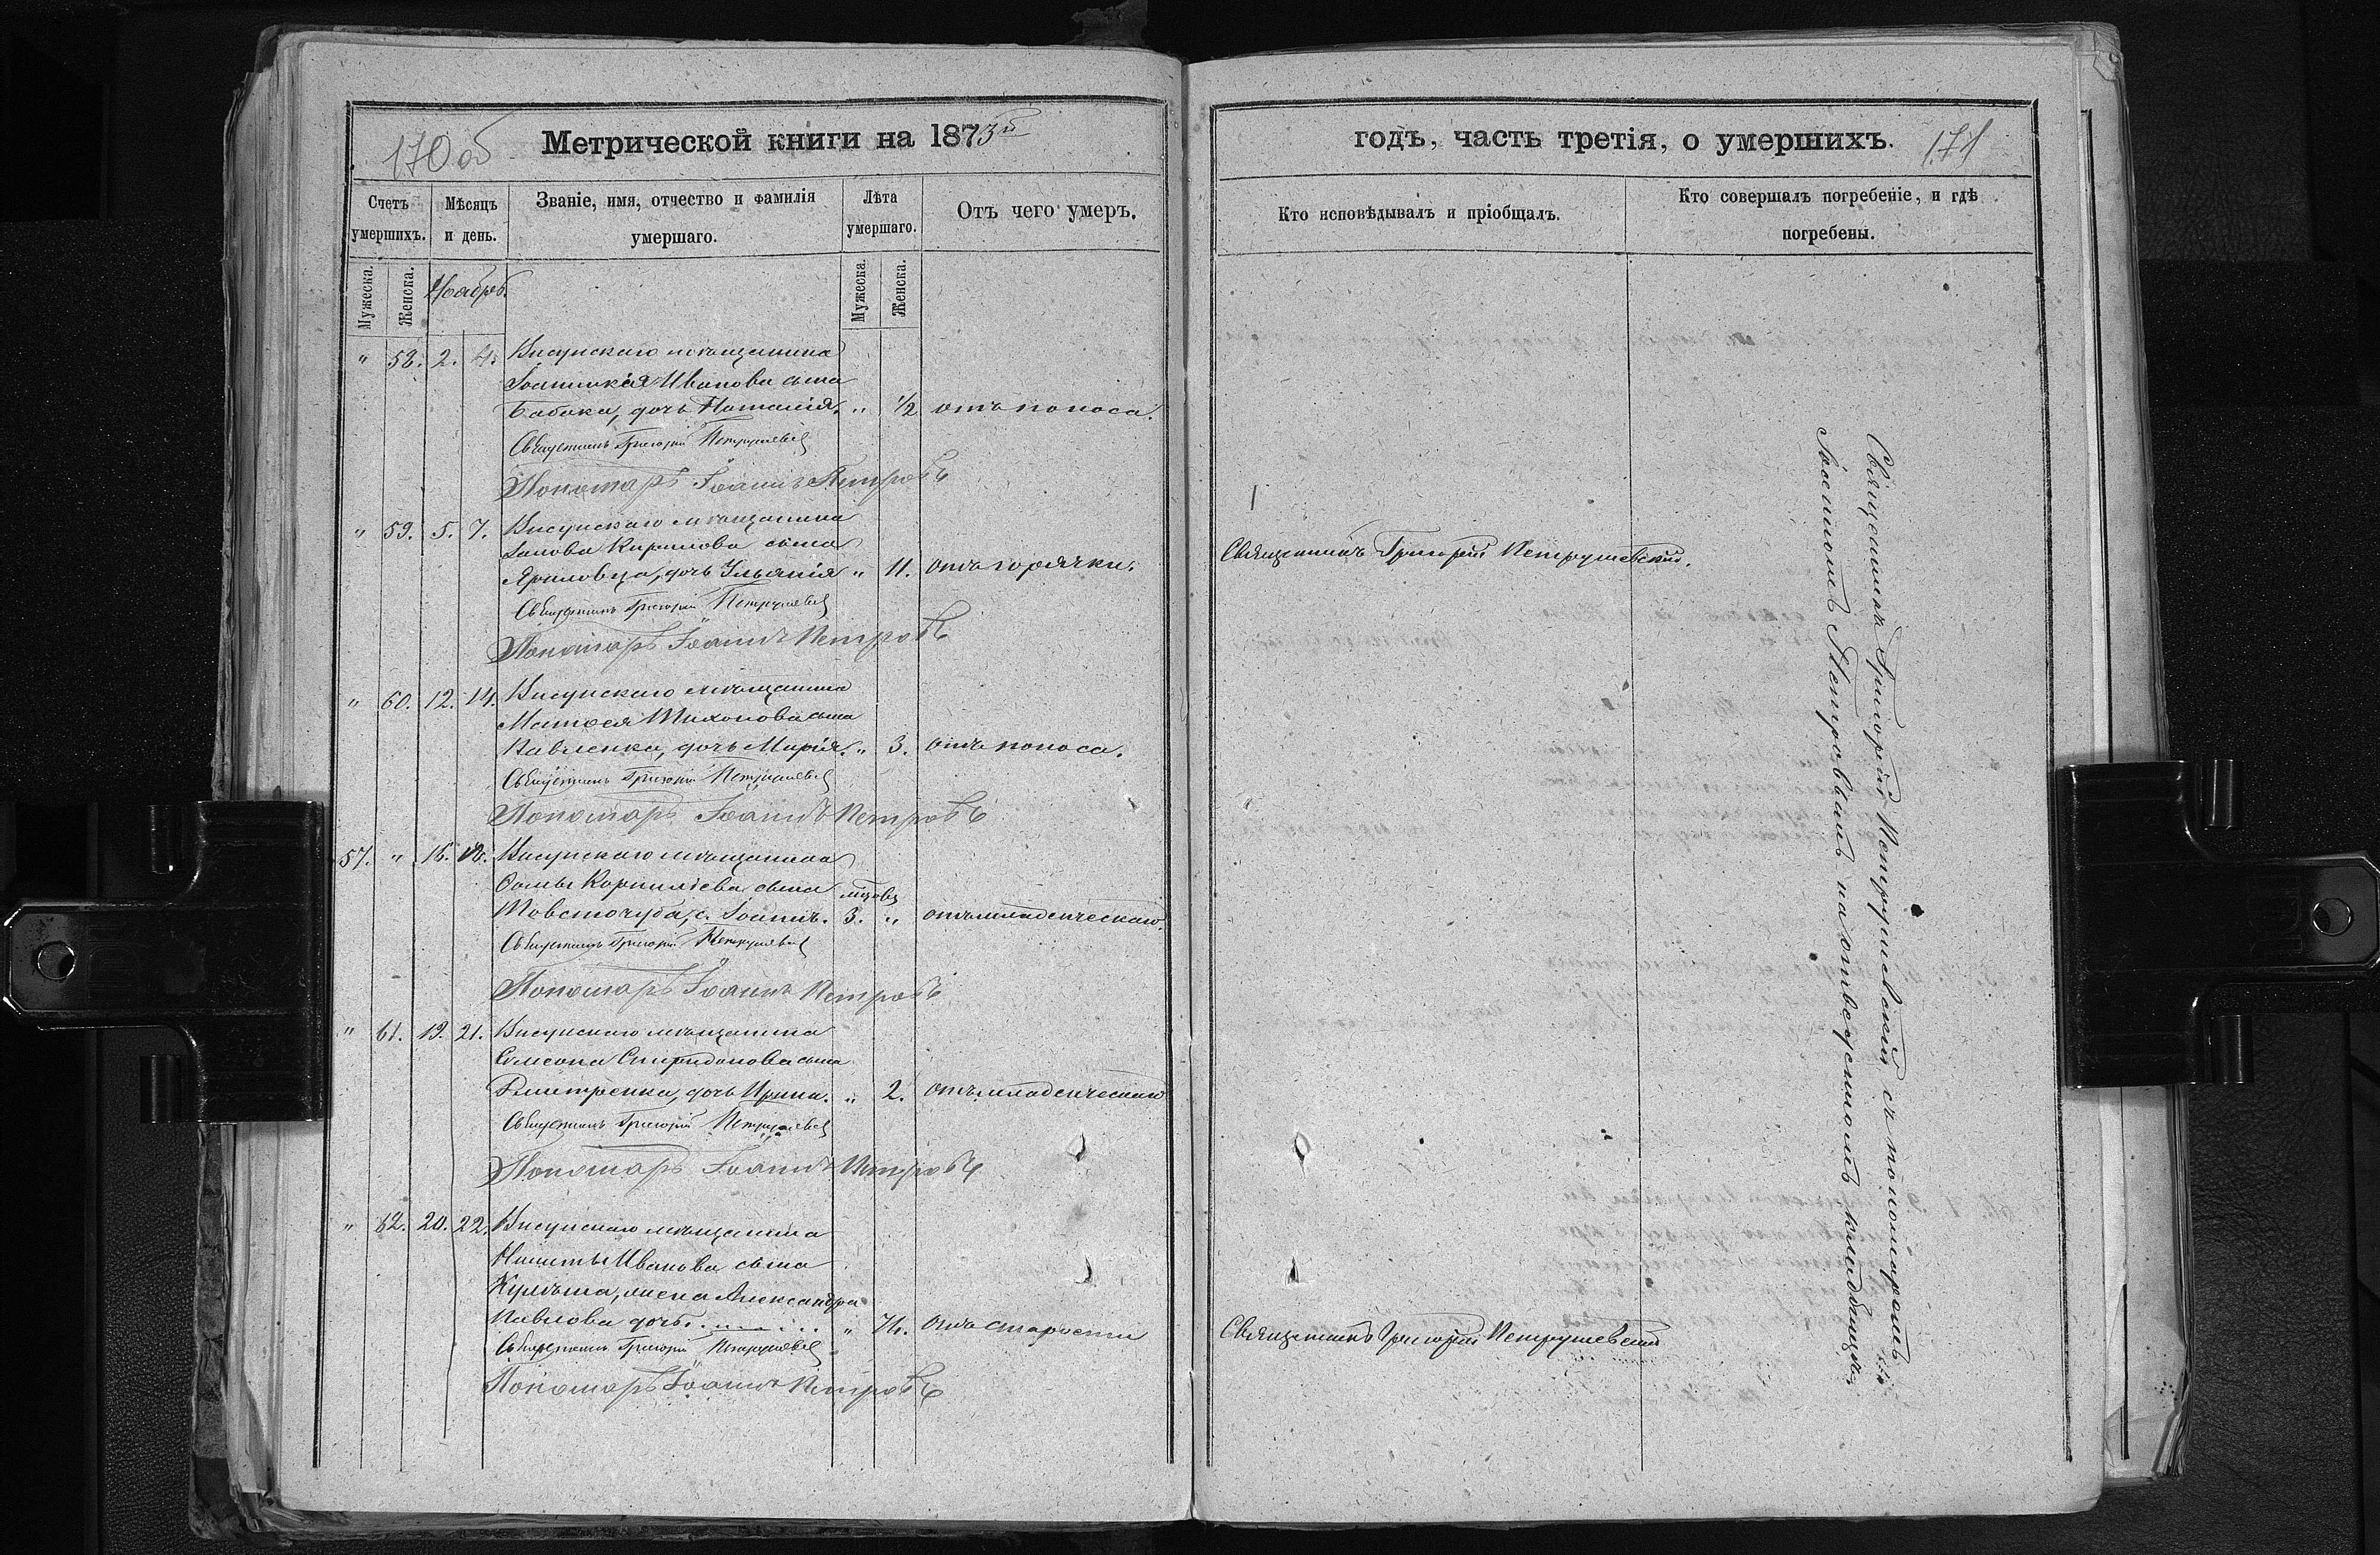 170 об
Метрической книги на 1873й
Счетъ умершихъ.
Мѣсяцъ и день.
Званіе, имя, отчество и фамилія умершаго.
Лѣта умершаго.
Отъ чего умеръ.
Мужеска.
Женска.
Ноябрь.
Мужеска.
Женска.
" 58. 2. 4. Висунскаго мѣщанина
Іоанникія Иванова сына
Бабака, дочь Наталія. " 1/2 отъ поноса.
Священникъ Григорій
Пономарь Іоаннъ Петровъ
" 59. 5. 7. Висунскаго мѣщанина
Кирилова сына
дочь Ульянія " 11. отъ горячки.
Священникъ Григорій
Пономарь Іоаннъ Петровъ
" 60. 12. 14. Висунскаго мѣщанина
Матѳея Тихонова сына
Павленка, дочь Марія. " 3. отъ поноса.
Священникъ Григорій
Пономарь Іоаннъ Петровъ
57. " 16. 18. Висунскаго мѣщанина
Ѳомы Корниліева сына мѣсяцъ
Товсточуба, с. Іоаннъ. 3. " отъ младенческаго.
Священникъ Григорій
Пономарь Іоаннъ Петровъ
" 61. 19. 21. Висунскаго мѣщанина
Симеона Спиридонова сына
Дмитренка, дочь Ирина. " 2. отъ младенческаго
Священникъ Григорій
Пономарь Іоаннъ Петровъ
" 62. 20. 22. Висунскаго мѣщанина
Никиты Иванова сына
жена Александра
Павлова дочь. " 74. отъ старости
Священникъ Григорій
Пономарь Іоаннъ Петровъ
годъ, часть третія, о умершихъ.
171
Кто исповѣдывалъ и пріобщалъ.
Кто совершалъ погребеніе, и гдѣ погребены.
Священникъ Григорій Петрушевскій.
Священникъ Григорій Петрушевскій
Священникъ Григорій Петрушевскій съ пономаремъ
Іоанномъ Петровымъ на отведенномъ кладбищѣ.